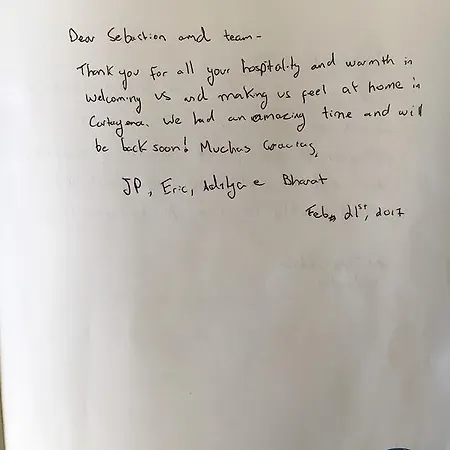 Dear Sebastion and team-
Thank you for all your hospitality and warmth in
welcoming us and making us feel at home in
Cartagena. We had an amazing time and will
be back soon! Muchas Gracias,
JP, Eric, Aditya e Bharat
Feb, 21st, 2017